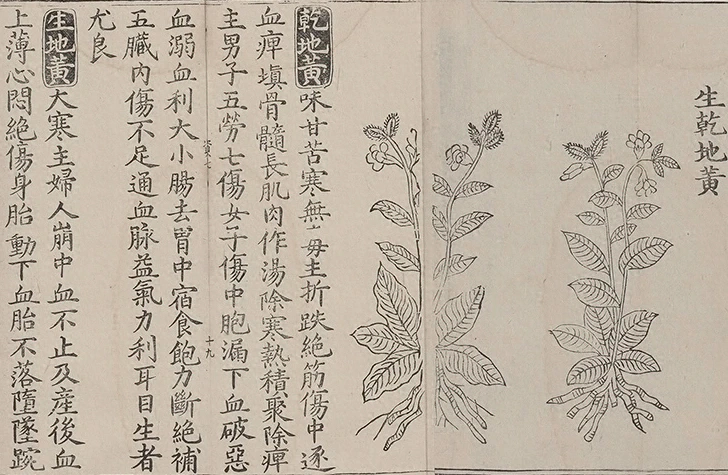 生乾地黃
乾地黃味甘苦寒無毒主折跌絕筋傷中逐
血痺塡骨髓長肌肉作湯除寒熱積聚除痺
主男子五勞七傷女子傷中胞漏下血破惡
血溺血利大小腸去胃中宿食飽力斷絕補
五臟內傷不足通血脉益氣力利耳目生者
尤良
生地黃大寒主婦人崩中血不止及產後血
上薄心悶絕傷身胎動下血胎不落墮墜踠
十九